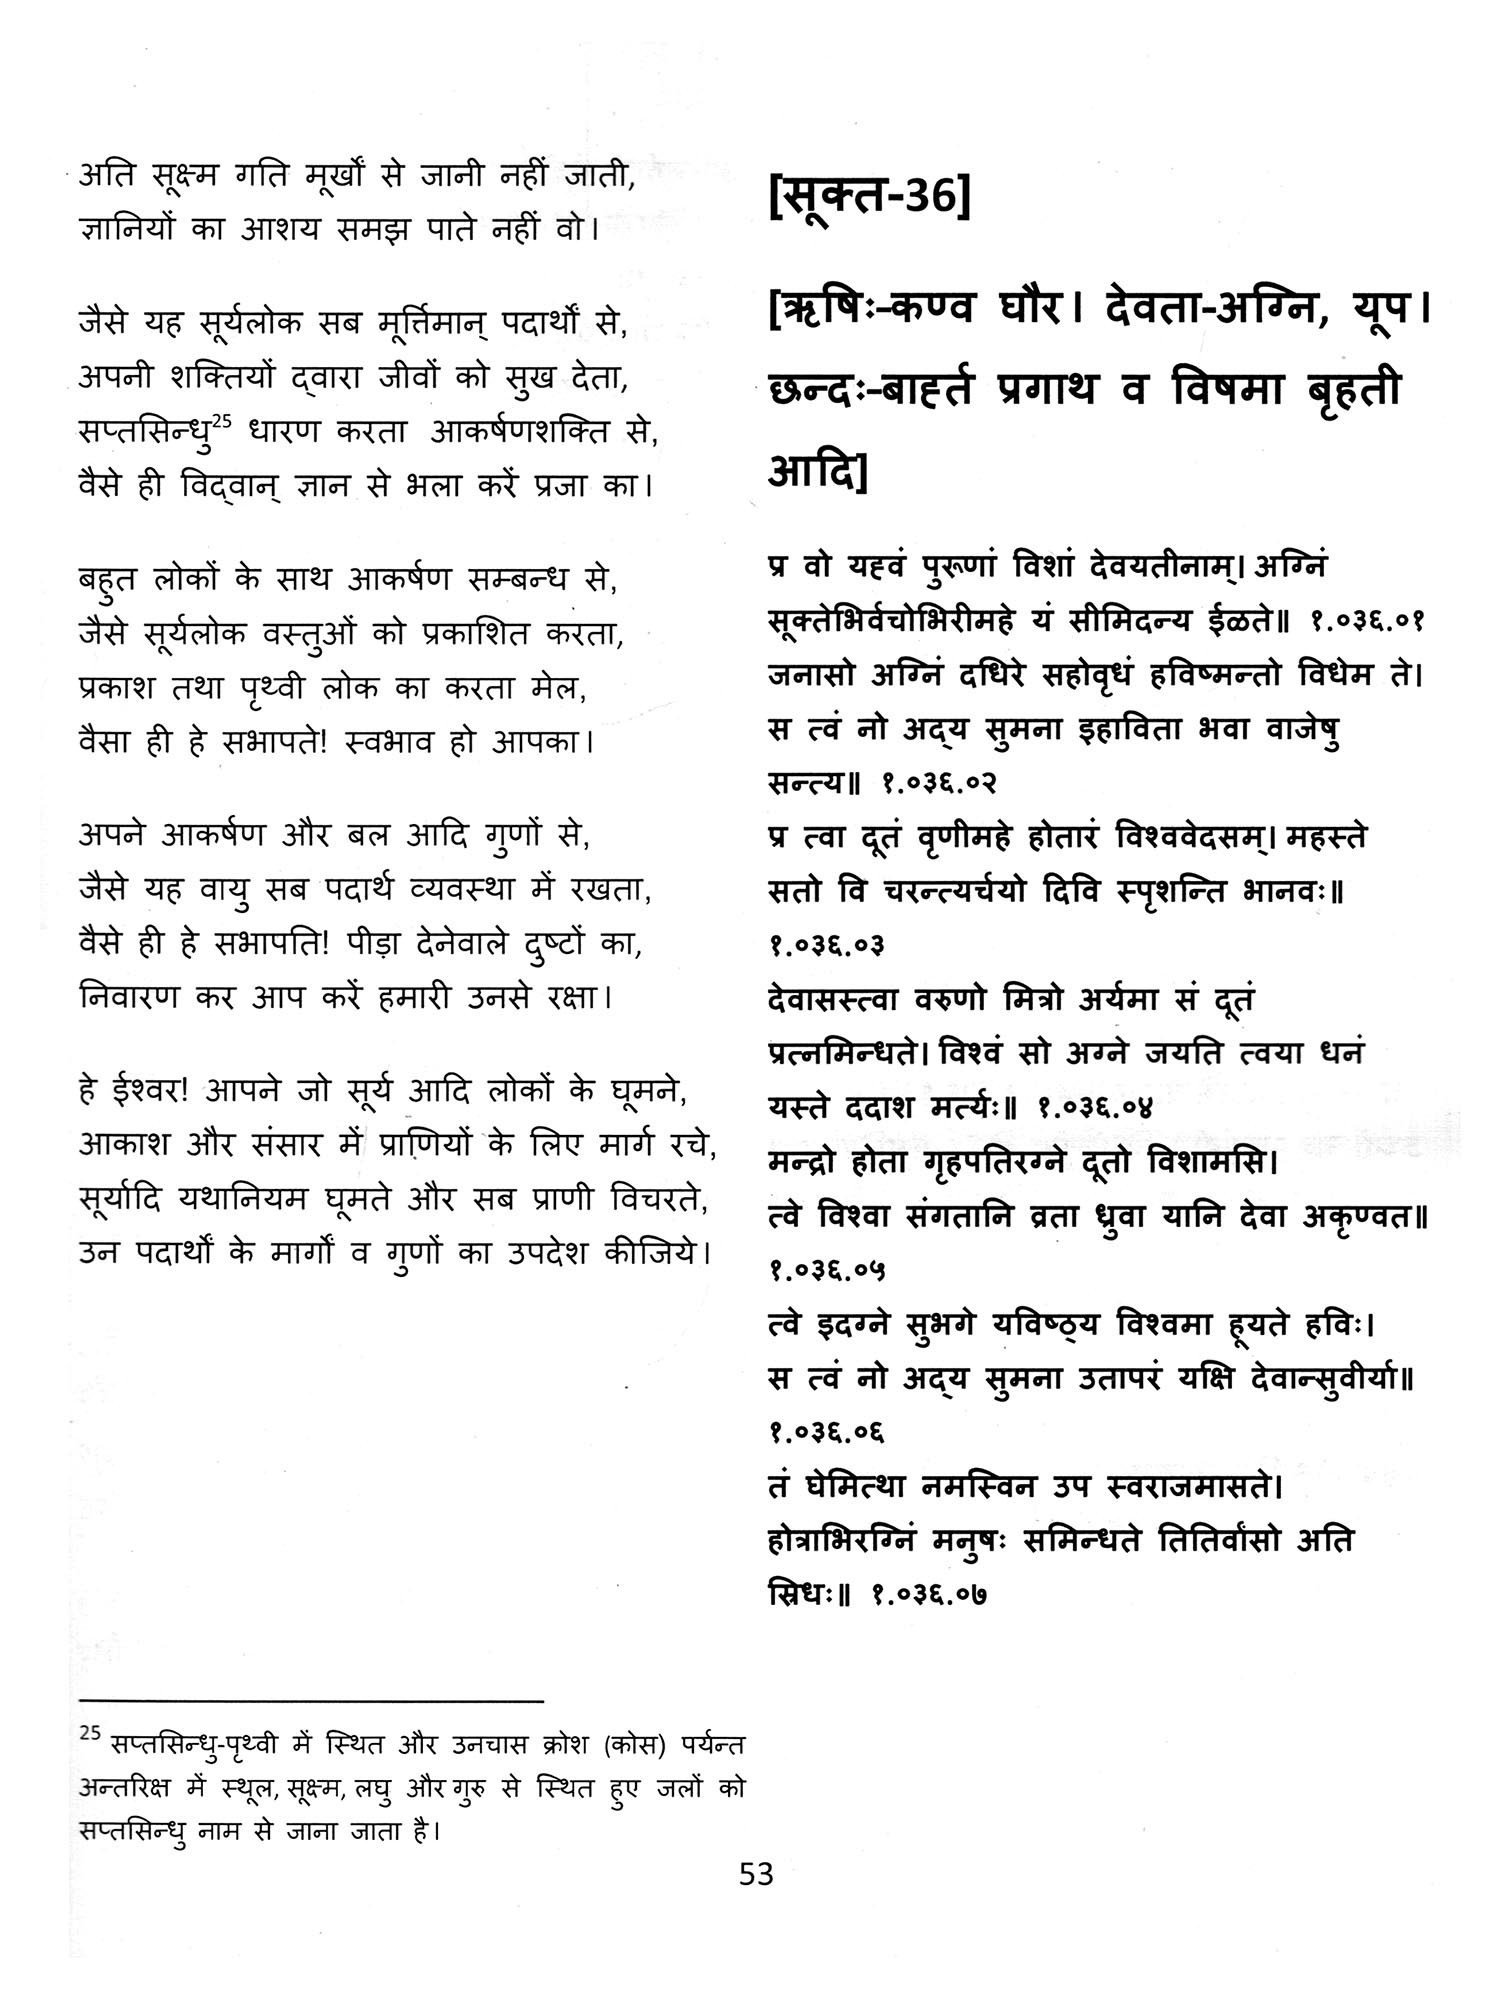 अति सूक्ष्म गति मूर्खों से जानी नहीं जाती,
ज्ञानियों का आशय समझ पाते नहीं वो।
जैसे यह सूर्यलोक सब मूर्त्तिमान् पदार्थों से,
अपनी शक्तियों द्वारा जीवों को सुख देता,
सप्तसिन्धु25 धारण करता आकर्षणशक्ति से,
वैसे ही विद्वान् ज्ञान से भला करें प्रजा का।
बहुत लोकों के साथ आकर्षण सम्बन्ध से,
जैसे सूर्यलोक वस्तुओं को प्रकाशित करता,
प्रकाश तथा पृथ्वी लोक का करता मेल,
वैसा ही हे सभापते! स्वभाव हो आपका।
अपने आकर्षण और बल आदि गुणों से,
जैसे यह वायु सब पदार्थ व्यवस्था में रखता,
वैसे ही हे सभापति! पीड़ा देनेवाले दुष्टों का,
निवारण कर आप करें हमारी उनसे रक्षा।
हे ईश्वर! आपने जो सूर्य आदि लोकों के घूमने,
आकाश और संसार में प्राणियों के लिए मार्ग रचे,
सूर्यादि यथानियम घूमते और सब प्राणी विचरते,
उन पदार्थों के मार्गों व गुणों का उपदेश कीजिये।
25 सप्तसिन्धु-पृथ्वी में स्थित और उनचास क्रोश (कोस) पर्यन्त
अन्तरिक्ष में स्थूल, सूक्ष्म, लघु और गुरु से स्थित हुए जलों को
सप्तसिन्धु नाम से जाना जाता है।
[सूक्त-36]
[ऋषिः-कण्व घौर। देवता-अग्नि, यूप।
छन्दः-बार्हत प्रगाथ व विषमा बृहती
आदि]
प्र वो यह्वं पुरूणां विशां देवयतीनाम्। अग्निं
सूक्तेभिर्वचोभिरीमहे यं सीमिदन्य ईळते॥ १.०३६.०१
जनासो अग्निं दधिरे सहोवृधं हविष्मन्तो विधेम ते।
स त्वं नो अद्य सुमना इहाविता भवा वाजेषु
सन्त्य॥ १.०३६.०२
प्र त्वा दूतं वृणीमहे होतारं विश्ववेदसम्। महस्ते
सतो वि चरन्त्यर्चयो दिवि स्पृशन्ति भानवः॥
१.०३६.०३
देवासस्त्वा वरुणो मित्रो अर्यमा सं दूतं
प्रत्नमिन्धते। विश्वं सो अग्ने जयति त्वया धनं
यस्ते ददाश मर्त्यः॥ १.०३६.०४
मन्द्रो होता गृहपतिरग्ने दूतो विशामसि।
त्वे विश्वा संगतानि व्रता ध्रुवा यानि देवा अकृण्वत॥
१.०३६.०५
त्वे इदग्ने सुभगे यविष्ठ्य विश्वमा हूयते हविः।
स त्वं नो अद्य सुमना उतापरं यक्षि देवान्सुवीर्या॥
१.०३६.०६
तं घेमित्था नमस्विन उप स्वराजमासते।
होत्राभिरग्निं मनुषः समिन्धते तितिर्वांसो अति
स्रिधः॥ १.०३६.०७
53